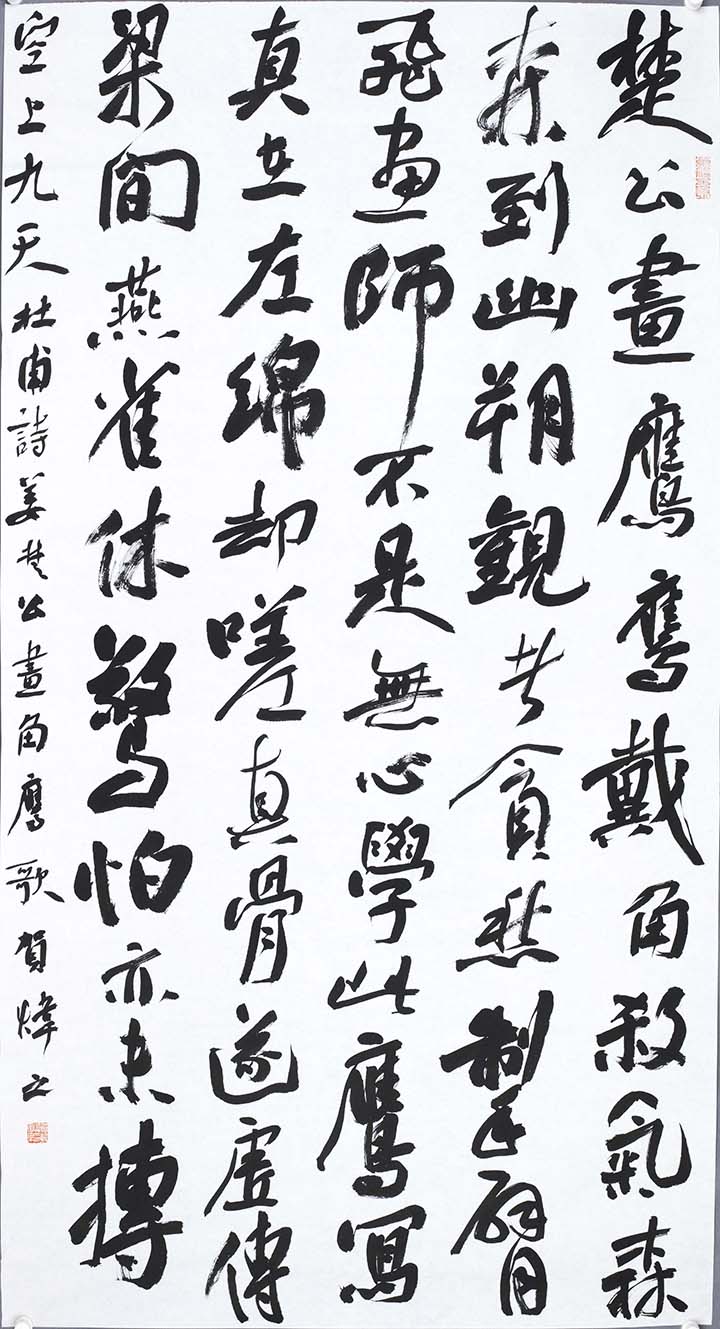 楚公畫鷹鷹戴角殺氣森
森到幽朔觀者貪愁掣臂
飛畫師不是無心學此鷹寫
真在左綿却嗟真骨遂虛傳
梁間燕雀休驚怕亦未摶
空上九天杜甫詩姜楚公畫角鷹歌賀煒之